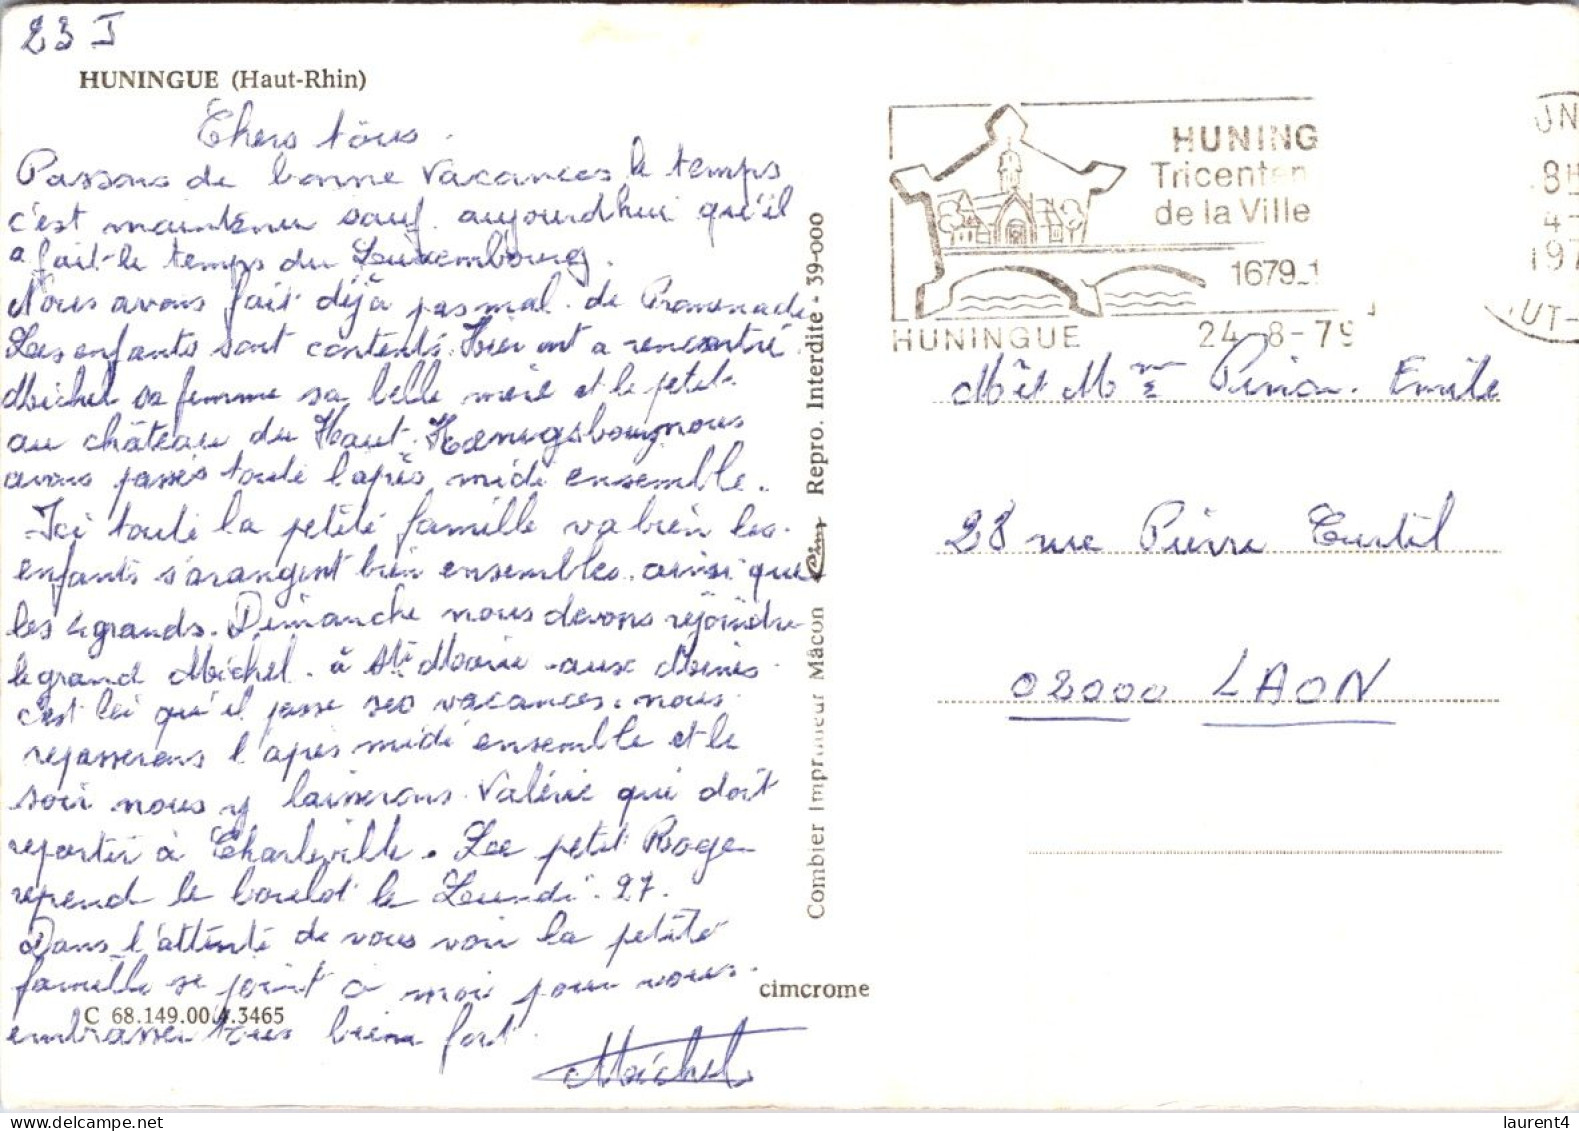 23 I
HUNINGUE (Haut-Rhin)
Chers tous.
Passons de bonne vacances le temps
c'est maintenu sauf aujourdhui qu'il
a fait le temps du Luxembourg.
Nous avons fait déjà pas mal de Promenade
Les enfants sont contents. Hier ont a rencontré
Michel sa femme sa belle mere et le petit
au château du Haut-Kœnigsbourg nous
avons passés toute l'après midi ensemble.
Ici toute la petite famille va bien les
enfants s'arangent bien ensembles. ainsi que
les 4 grands. Dimanche nous devons rejoindre
le grand Michel à Ste Marie aux Mines
c'est là qu'il passe ses vacances. nous
repasserons l'après midi ensemble et le
soir nous y laisserons Valérie qui doit
repartir à Charleville. Le petit Roger
reprend le boulot le Lundi 27.
Dans l'attente de vous voir la petite
famille se joint à moi pour vous
embrasser tous bien fort.
Michel
C 68.149.00.4.3465
cimcrome
Combier Imprimeur Mâcon Cim Repro. Interdite - 39-000
HUNING
Tricenten
de la Ville
1679_1
HUNINGUE 24-8-79
UN
8H
4-
197
UT-
Mr et Mme Emile
28 rue Pierre Curtil
02000 LAON
laurent4